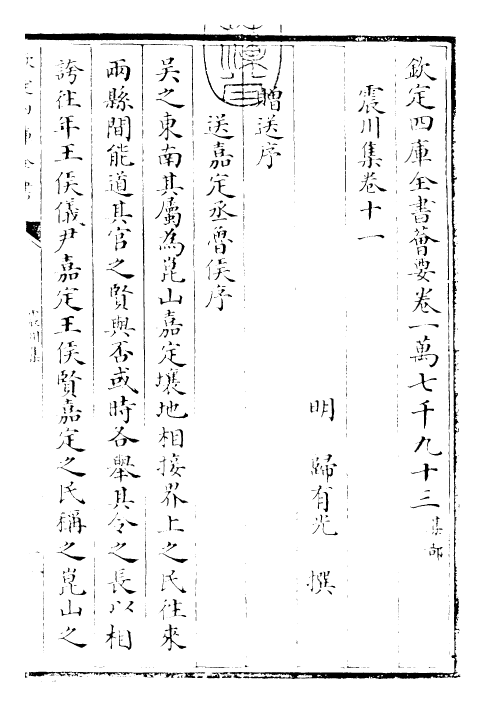 欽定四庫全書薈要卷一萬七千九十三 集部
震川集卷十一
明 歸有光 撰
贈送序
送嘉定丞魯侯序
吳之東南其屬為崑山嘉定壤地相接界上之民往來
兩縣間能道其官之賢與否或時各舉其令之長以相
誇往年王侯儀尹嘉定王侯賢嘉定之民稱之崑山之
欽定四庫全書
震川集